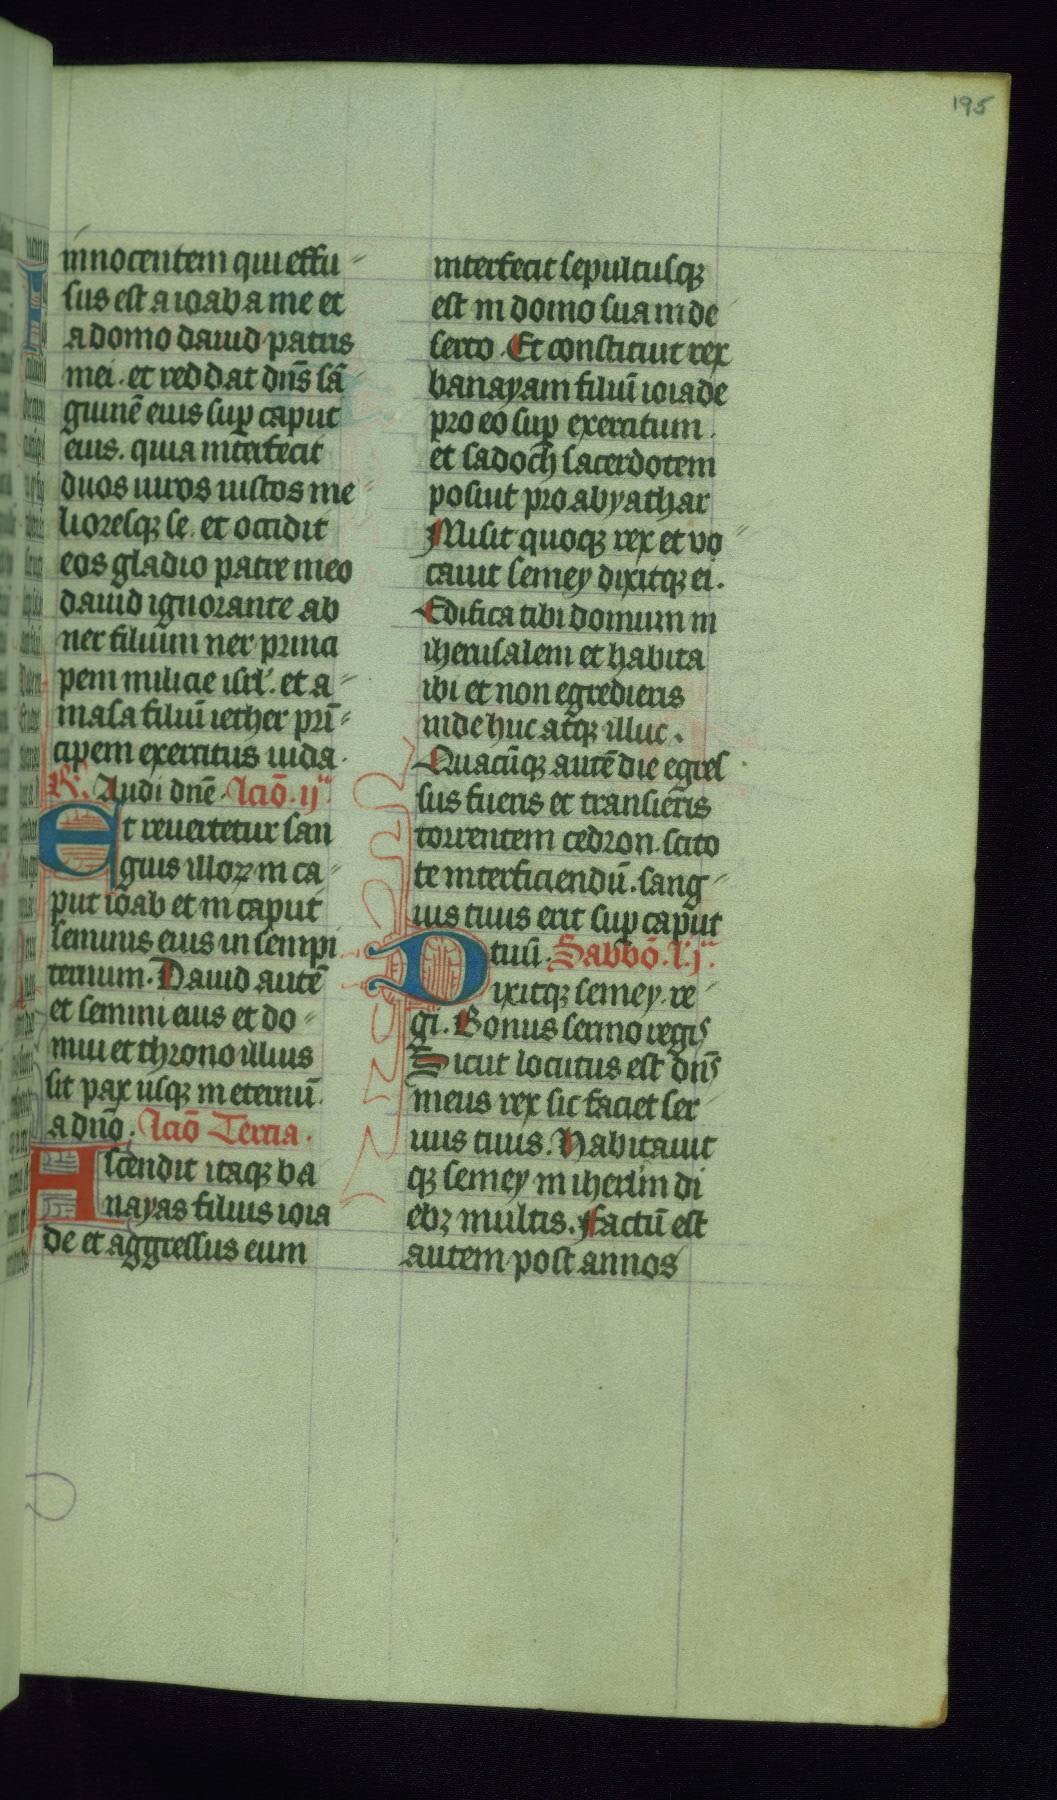 195
innocentem qui effu
sus est a ioab a me et
a domo dauid patris
mei. et reddat dñs sā
guinē eius sup caput
eius. quia interfecit
duos uiros iustos me
liores q; se. et occidit
eos gladio patre meo
dauid ignorante ab
ner filium ner princi
pem milicie isrl'. et a
masa filiū iether prī
cipem exercitus iuda.
R. Audi dnē. lcīo. ij
Et reuertetur san
guis illoꝝ in ca
put ioab et in caput
seminis eius in sempi
ternum. Dauid autē
et semini eius et do
mui et throno illius
sit pax usq; in eternū.
a dño. lcīo Tercia.
Ascendit itaq; ba
nayas filius ioia
de et aggressus eum
interfecit sepultusq;
est in domo sua in de
serto. Et constituit rex
banayam filiū ioiade
pro eo sup exercitum.
et sadoch sacerdotem
posuit pro abyathar
Misit quoq; rex et uo
cauit semey dixitq; ei.
Edifica tibi domum in
iherusalem et habita
ibi et non egredieris
inde huc atq; illuc.
Quacūq; autē die egres
sus fueris et transieris
torrentem cedron. scito
te interficiendū. sang
uis tuus erit sup caput
tuū. Sabbō. l'. j.
Dixitq; semey. re
gi. Bonus sermo regis
Sicut locutus est dñs
meus rex sic faciet ser
uus tuus. Habitauit
q; semey in iherl'm di
eb; multis. Factū est
autem post annos